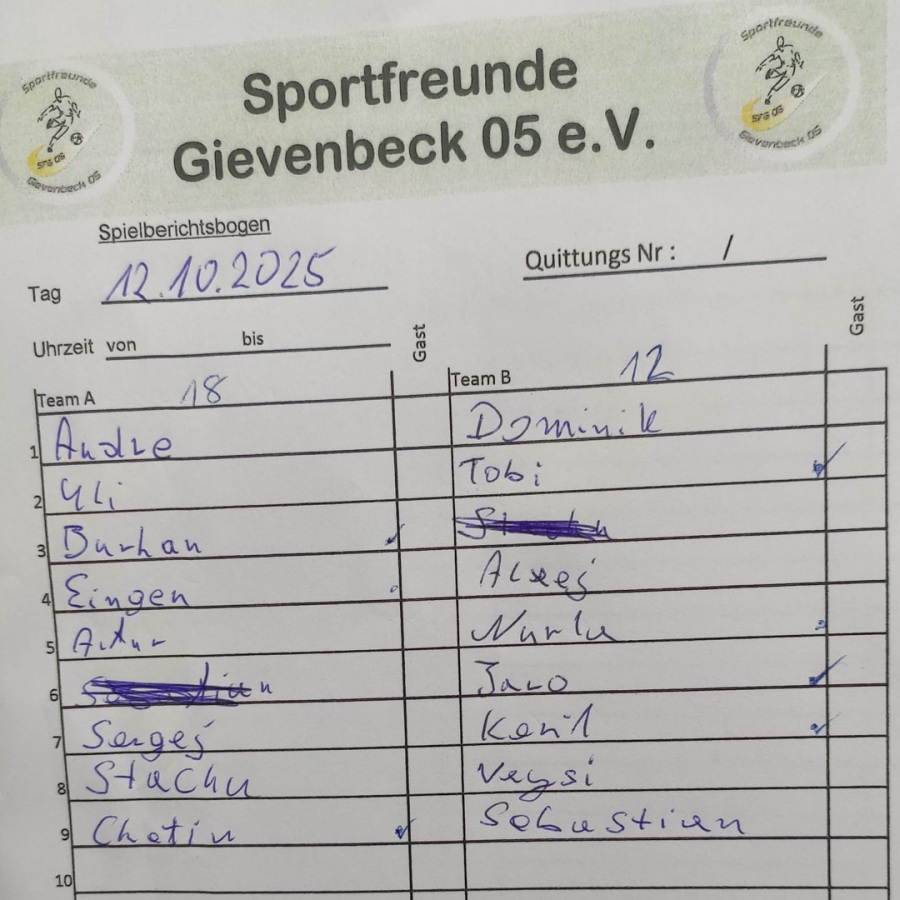 Sportfreunde
Gievenbeck 05 e.V.
Sportfreunde
SFG 05
Gievenbeck 05
Sportfreunde
SFG 05
Gievenbeck 05
Spielberichtsbogen
Tag 12.10.2025
Quittungs Nr : /
Uhrzeit von bis
Gast
Gast
Team A 18
Team B 12
1 Andre
Dominik
2 Yli
Tobi
3 Burhan
4 Eingen
Alexej
5 Artur
Nurlu
6
Jaro
7 Sergej
Keril
8 Stachu
Veysi
9 Chetin
Sebastian
10